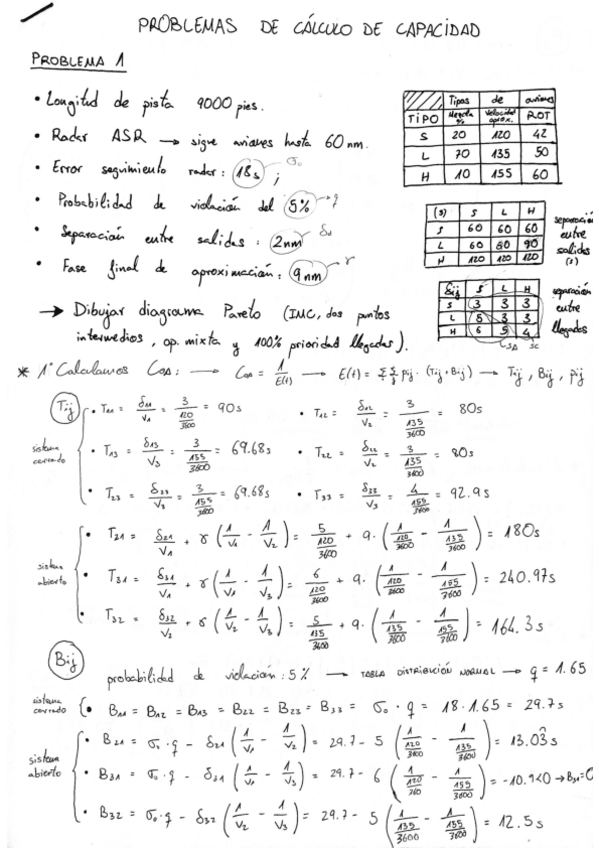 PROBLEMAS DE CÁLCULO DE CAPACIDAD
PROBLEMA 1
• Longitud de pista 9000 pies.
• Radar ASR → sigue aviones hasta 60 nm.
• Error seguimiento radar: 18s ; σ₀
• Probabilidad de violación del 5% → q
• Separación entre salidas: 2nm δd
• Fase final de aproximación: 9nm γ
Tipos de aviones
TIPO Mezcla % Velocidad aprox. ROT
S 20 120 42
L 70 135 50
H 10 155 60
(s) S L H
S 60 60 60
L 60 60 90
H 120 120 120
separación entre salidas (s)
δij S L H
S 3 3 3
L 5 3 3
H 6 5 4
SA SC
separación entre llegadas
→ Dibujar diagrama Pareto (IMC, dos puntos
intermedios, op. mixta y 100% prioridad llegadas).
* 1º Calculamos CPA: → CPA = 1/E(t) → E(t) = Σ Σ pij · (Tij + Bij) → Tij, Bij, pij
Tij
sistema cerrado
• T11 = δ11/V1 = 3/(120/3600) = 90s • T12 = δ12/V2 = 3/(135/3600) = 80s
• T13 = δ13/V3 = 3/(155/3600) = 69.68s • T22 = δ22/V2 = 3/(135/3600) = 80s
• T23 = δ23/V3 = 3/(155/3600) = 69.68s • T33 = δ33/V3 = 4/(155/3600) = 92.9s
sistema abierto
• T21 = δ21/V1 + γ (1/V1 - 1/V2) = 5/(120/3600) + 9·(1/(120/3600) - 1/(135/3600)) = 180s
• T31 = δ31/V1 + γ (1/V1 - 1/V3) = 6/(120/3600) + 9·(1/(120/3600) - 1/(155/3600)) = 240.97s
• T32 = δ32/V2 + γ (1/V2 - 1/V3) = 5/(135/3600) + 9·(1/(135/3600) - 1/(155/3600)) = 164.3s
Bij
probabilidad de violación: 5% → TABLA DISTRIBUCIÓN NORMAL → q = 1.65
sistema cerrado
• B11 = B12 = B13 = B22 = B23 = B33 = σ₀ · q = 18 · 1.65 = 29.7s
sistema abierto
• B21 = σ₀ · q - δ21 (1/V1 - 1/V2) = 29.7 - 5 (1/(120/3600) - 1/(135/3600)) = 13.03s
• B31 = σ₀ · q - δ31 (1/V1 - 1/V3) = 29.7 - 6 (1/(120/360) - 1/(155/3600)) = -10.9<0 → B31=0
• B32 = σ₀ · q - δ32 (1/V2 - 1/V3) = 29.7 - 5 (1/(135/3600) - 1/(155/3600)) = 12.5s